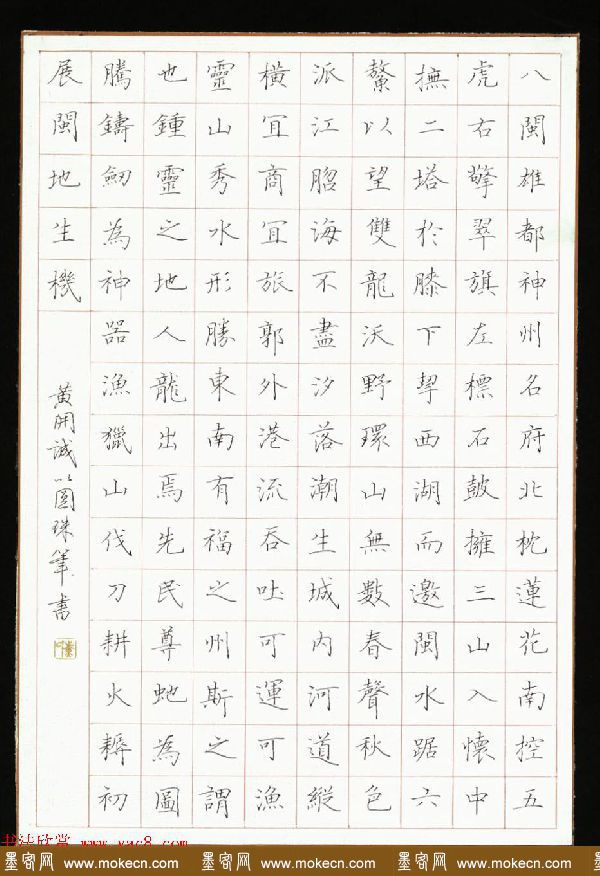 八閩雄都神州名府北枕蓮花南控五
虎右擎翠旗左標石鼓擁三山入懷中
撫二塔於膝下挈西湖而邀閩水踞六
鰲以望雙龍沃野環山無數春聲秋色
派江腔海不盡汐落潮生城内河道縱
橫宜商宜旅郭外港流吞吐可運可漁
靈山秀水形勝東南有福之州斯之謂
也鍾靈之地人龍出焉先民尊虵為圖
騰鑄劒為神器漁獵山伐刀耕火耨初
展閩地生機
黄開誠以圓珠筆書
书法欣赏 www.yac8.com
墨客网 www.mokecn.com 墨客网 www.mokecn.com 墨客网 www.mokecn.com